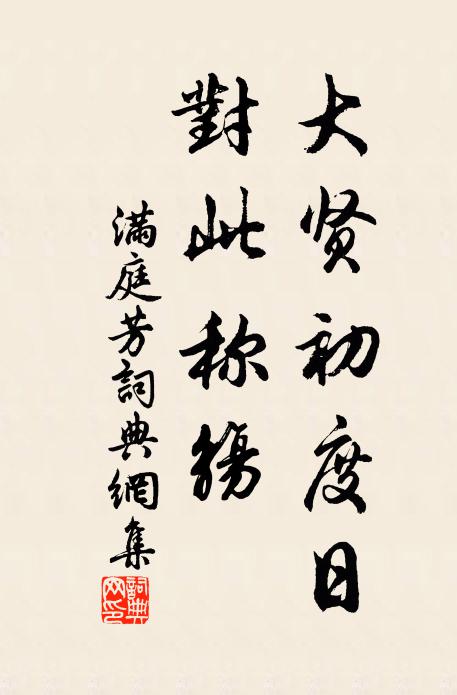 大贤初度日
對此称觴
满庭芳詞典網集
詞典网印